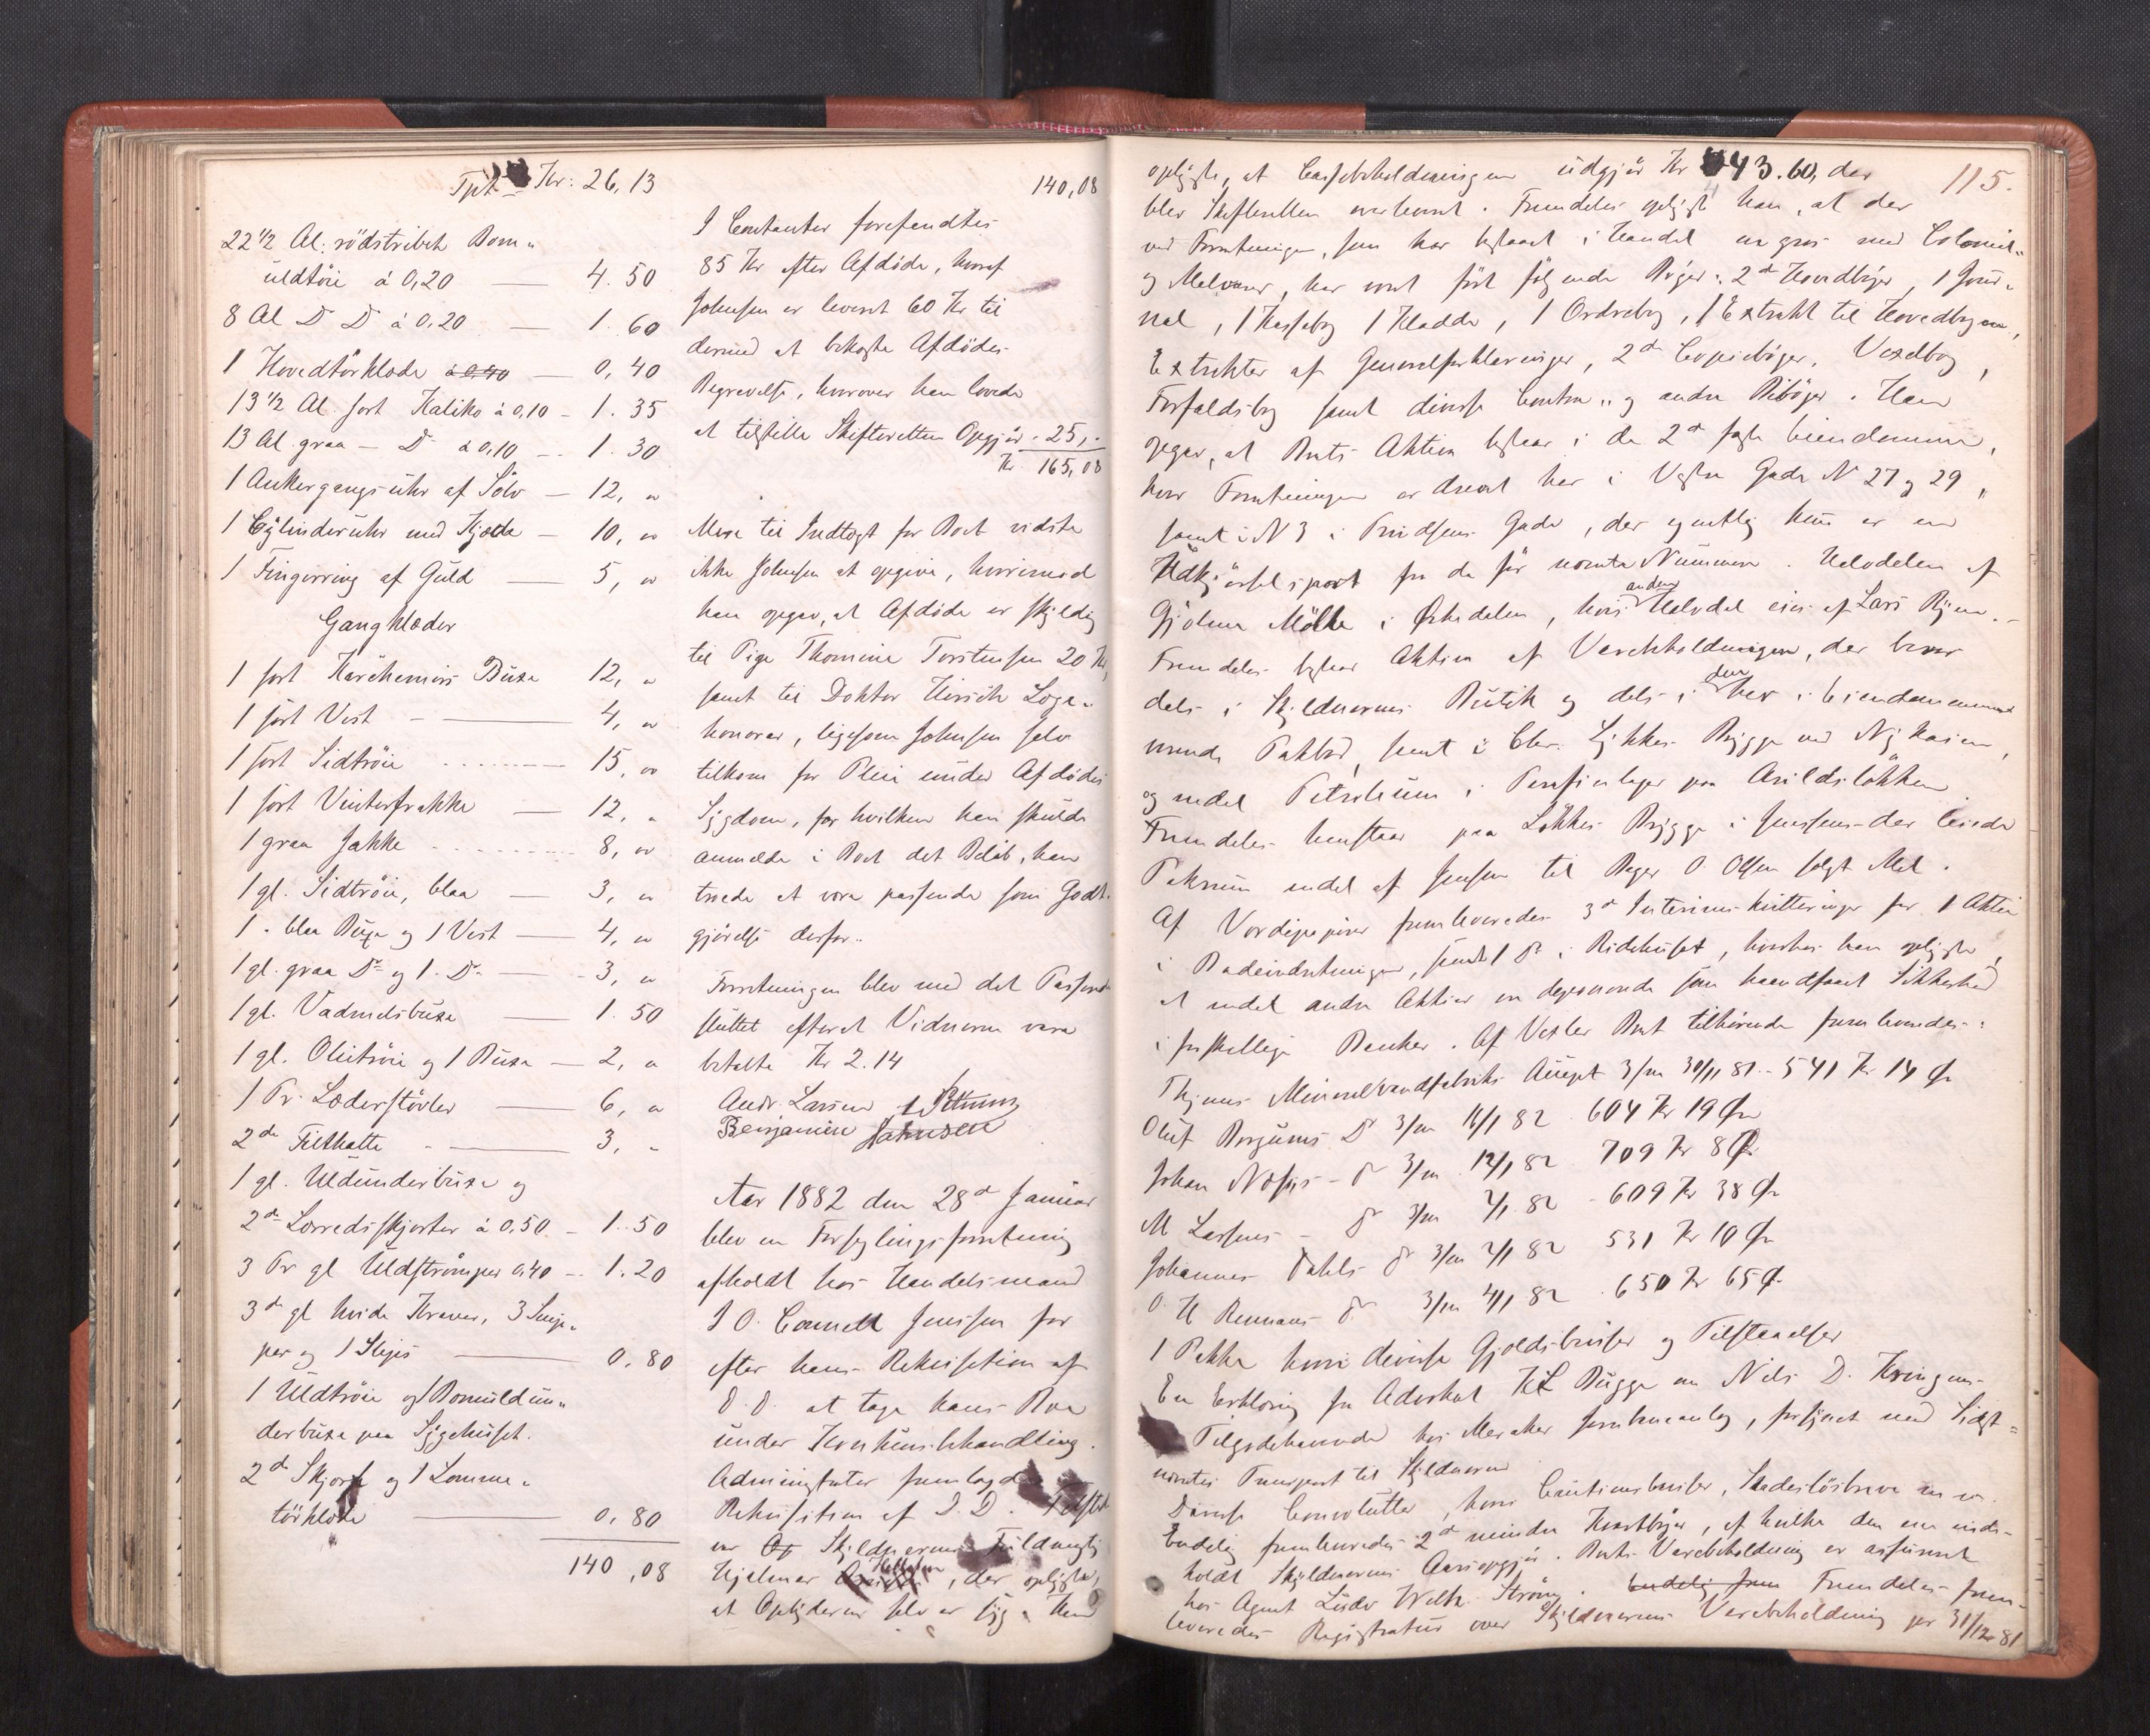 Tpt Kr: 26,13
22 1/2 Al: rödstribet Bom„
uldtöie à 0,20 — 4. 50
8 Al D D à 0,20 — 1. 60
1 Hovedtörklæde à 0,40 — 0, 40
13 1/2 Al sort Kaliko à 0,10 - 1. 35
13 Al graa — D à 0,10 - 1. 30
1 Ankergangsuhr af Sölv — 12, „
1 Cylinderuhr med Kjæde — 10, „
1 Fingerring af Guld — 5, „
Gangklæder
1 sort Buxe 12, „
1 sort Vest — 4, „
1 sort Sidtröie — 15, „
1 sort Vinterfrakke — 12, „
1 graa Jakke — 8, „
1 gl. Sidtröie, blaa — 3, „
1 - blaa Buxe og 1 Vest — 4, „
1 gl. graa Do og 1 Do — 3, „
1 gl. Vadmelsbuxe — 1. 50
1 gl. Olietröie og 1 Buxe — 2, „
1 Pr. Læderstövler — 6, „
2de Filthatte — 3, „
1 gl. Uldunderbuxe og
2de Lærredsskjorter à 0,50 - 1. 50
3 Pr gl Uldströmper 0,40 - 1. 20
3de gl hvide Kraver, 3 Snip„
per og 1 Slips — 0. 80
1 Uldtröie og 1 Bomuldun„
derbuxe paa Sygehuset.
2de Skjorte og 1 Lomme„
törklæde — 0, 80
140, 08
140,08
I Contanter forefandtes
85 Kr efter Afdöde, hvoraf
Johnsen er leveret 60 Kr til
dermed at bekoste Afdödes
Begravelse, hvorover han lovede
at tilstille Skifteretten Opgjör - 25,-
Kr. 165,08
Mere til Indtægt for Boet vidste
ikke Johnsen at opgive, hvorimod
han opgav, at Afdöde er skyldig
til Pige Thomine Torstensen 20 Kr,
samt til Doktor Hirsch Læge„
honorar, ligesom Johnsen selv
tilkom for Pleie under Afdödes
Sygdom, for hvilken han skulde
anmelde i Boet det Belöb, han
troede at være passende som Godt„
gjörelse derfor.
Forretningen blev med det Passerede
sluttet efterat Vidnerne vare
betalte Kr 2.14
Andr. Larsen
Benjamin Johnsen
Aar 1882 den 28de Januar
blev en Forseglingsforretning
afholdt hos Handelsmand
I O. Jenssen for
efter hans Rekvisition af
D.D. at tage hans Boe
under Konkursbehandling.
Administrator fremlagde
Rekvisition af D.D. Tilstede
var Op Skyldnerens Fuldmægtig
Hjalmar , der oplyste,
at Opbyderen selv er syg. Han
115.
oplyste, at Cassebeholdningen udgjör Kr 43.60, der
blev Skifteretten overleveret. Fremdeles oplyste han, at der
ved Forretningen, som har bestaaet i Handel en gros med Colonial„
og Melvarer, har været fört fölgende Böger: 2de Hovedböger, 1 Jour„
nal, 1 Kassebog 1 Kladde, 1 Ordrebog, 1 Extrakt til Hovedbogen,
Extrakter af Generalforklaringer, 2de Copieböger, Vexelbog,
Forfaldsbog samt diverse Contra„ og andre Biböger. Han
opgav, at Boets Aktiva bestaar i de 2de faste Eiendomme,
hvor Forretningen er drevet her i Vestre Gade N 27 og 29,
samt i N 3 i Gade, der egentlig kun er en
Udkjörselsport fra de för nævnte Nummere. Halvdelen af
Gjölme Mölle i Ørkedalen, hvis anden Halvdel eies af Lars Rýen.
Fremdeles bestaar Aktiva af Varebeholdningen, der beror
dels i Skyldnerens Butik og dels i den her i Eiendommen
værende Pakbod, samt i Chr. Lykkes Brygge ved Nykaien,
og endel Petroleum i Parafinlager paa Arildslökken
Fremdeles henstaar paa Lökkes Brygge i Jenssens der leiede
Pakrum endel af Jenssen til Bager O. Olsen solgt Mel.
Af Værdipapirer fremleveredes 3de Interimskvitteringer for 1 Aktie
i Badeindretningen, samt 1 Do i Ridehuset, hvorhos han oplyste,
at endel andre Aktier er deponerede som haandfaaet Sikkerhed
i forskjellige Banker. Af Vexler Boet tilhörende fremleveredes:
Thjems Mineralvandfabriks Accept 3/m 30/11 81 - 541 Kr 14 Ør
Oluf Borgums Do 3/m 16/1 82 . 604 Kr 19 Øre
Johan Næsses - Do 3/m 12/1 82 709 Kr 8 Ør
M Larsens - Do 3/m 2/1 82 - 609 Kr 38 Ør
Johannes Dahls Do 3/m 2/1 82 531 Kr 10 Ør
O. H Do 3/m 4/1 82 . 650 Kr 65 Ør
1 Pakke hvori diverse Gjældsbeviser og Tilstaaelser
En Erklæring fra Advokat Bugge om Nils D.
Tilgodehavende hos Meraker , forsynet med Sidst„
nævntes Transport til Skyldneren
Diverse Convolutter, hvori Cautionsbeviser, Skadeslösbreve m. v.
Endelig fremleveredes 2de mindre Kvartböger, af hvilke den ene inde-
holdt Skyldnerens Aarsopgjör. Boets Varebeholdning er assureret
hos Agent Ludv Wilh. Ström. Endelig frem Fremdeles frem-
leveredes Registratur over Skyldnerens Varebeholdning per 31/12 81